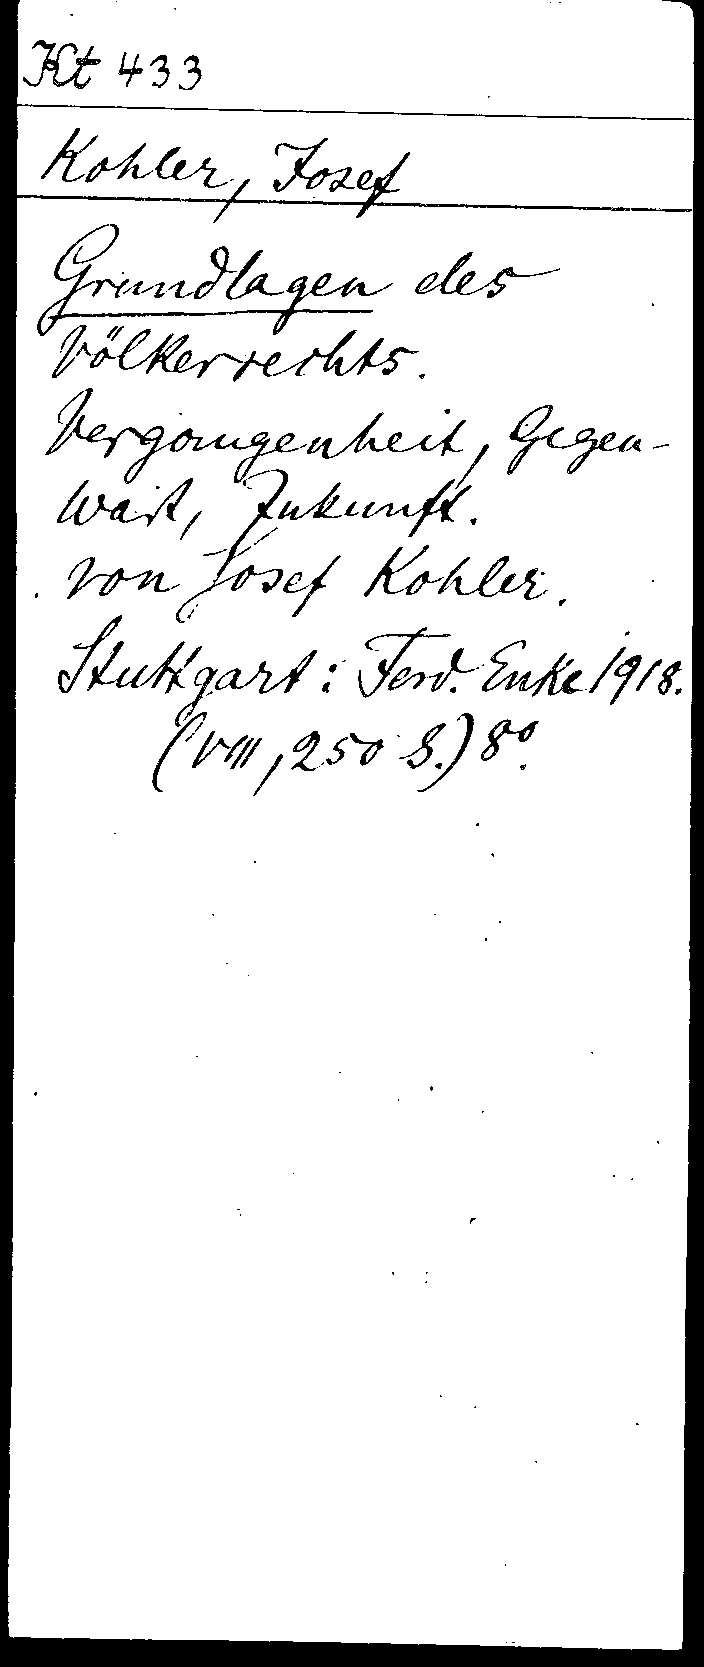 Kt 433
Kohler, Josef
Grundlagen des
Völkerrechts.
Vergangenheit, Gegen-
wart, Zukunft.
von Josef Kohler.
Stuttgart: Ferd. Enke 1918.
(VIII, 250 S.) 8°.